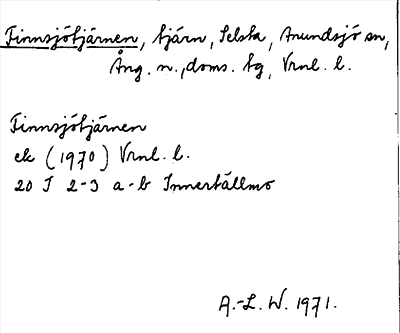 Finnsjötjärnen, tjärn, Selsta, Anundsjö sn,
Ång. n., doms. tg, Vrnl. l.
Finnsjötjärnen
ek (1970) Vrnl. l.
20 J 2-3 a-b Innertällmo
A.-L. W. 1971.